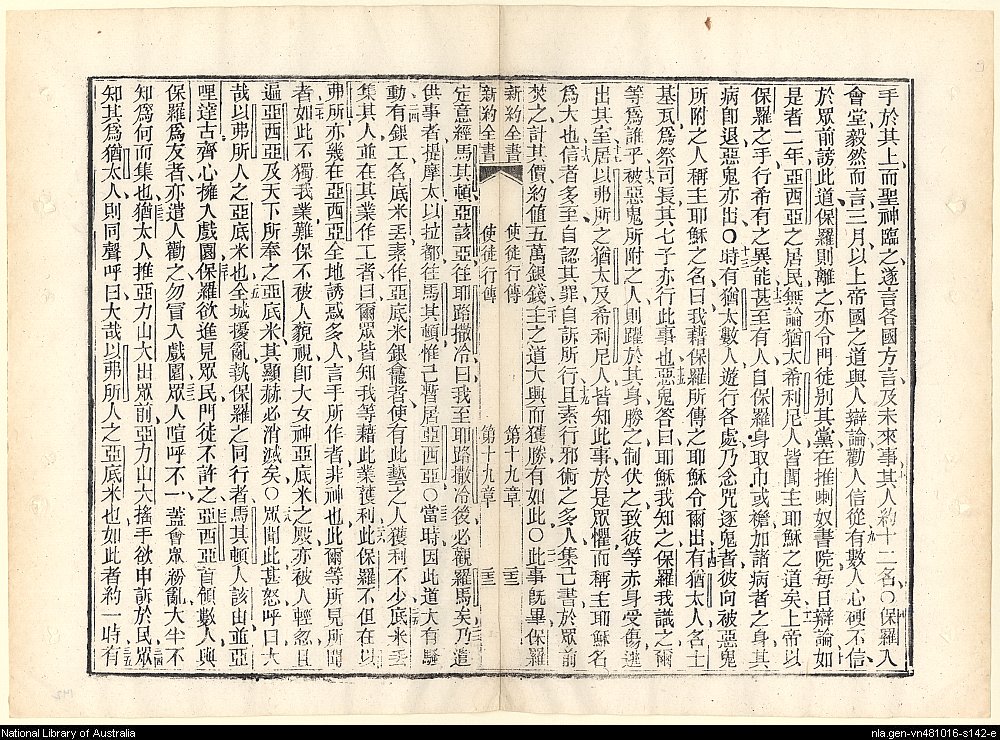 手於其上而聖神臨之遂言各國方言及未來事其人約十二名○保羅入
會堂毅然而言三月以上帝國之道與人辯論勸人信從有數人心硬不信
於眾前謗此道保羅則離之亦令門徒别其黨在推喇奴書院每日辯論如
是者二年亞西亞之居民無論猶太希利尼人皆聞主耶穌之道矣上帝以
保羅之手行希有之異能甚至有人自保羅身取巾或襜加諸病者之身其
病卽退惡鬼亦出○時有猶太數人遊行各處乃念咒逐鬼者彼向被惡鬼
所附之人稱主耶穌之名曰我藉保羅所傳之耶穌令爾出有猶太人名士
基瓦爲祭司長其七子亦行此事也惡鬼答曰耶穌我知之保羅我識之爾
等爲誰乎被惡鬼所附之人則躍於其身勝之制伏之致彼等赤身受傷逃
出其室居以弗所之猶太及希利尼人皆知此事於是眾懼而稱主耶穌名
爲大也信者多至自認其罪自訴所行且素行邪術之多人集己書於眾前
焚之計其價約值五萬銀錢主之道大興而獲勝有如此○此事旣畢保羅
新約全書 使徒行傳 第十九章
新約全書 使徒行傳 第十九章
定意經馬其頓亞該亞往耶路撒冷曰我至耶路撒冷後必觀羅馬矣乃遣
供事者提摩太以拉都往馬其頓惟己暫居亞西亞○當時因此道大有騷
動有銀工名底米丟素作亞底米銀龕者使有此藝之人獲利不少底米丟
集其人並在其業作工者曰爾眾皆知我等藉此業獲利此保羅不但在以
弗所亦幾在亞西亞全地誘惑多人言手所作者非神也此爾等所見所聞
者如此不獨我業難保不被人藐視卽大女神亞底米之殿亦被人輕忽且
遍亞西亞及天下所奉之亞底米其顯赫必消滅矣○眾聞此甚怒呼曰大
哉以弗所人之亞底米也全城擾亂執保羅之同行者馬其頓人該由並亞
哩達古齊心擁入戲園保羅欲進見眾民門徒不許之亞西亞首領數人與
保羅爲友者亦遣人勸之勿冒入戲園眾人喧呼不一蓋會眾紛亂大半不
知爲何而集也猶太人推亞力山大出眾前亞力山大搖手欲申訴於民眾
知其爲猶太人則同聲呼曰大哉以弗所人之亞底米也如此者約一時有
National Library of Australia
nla.gen-vn481016-s142-e